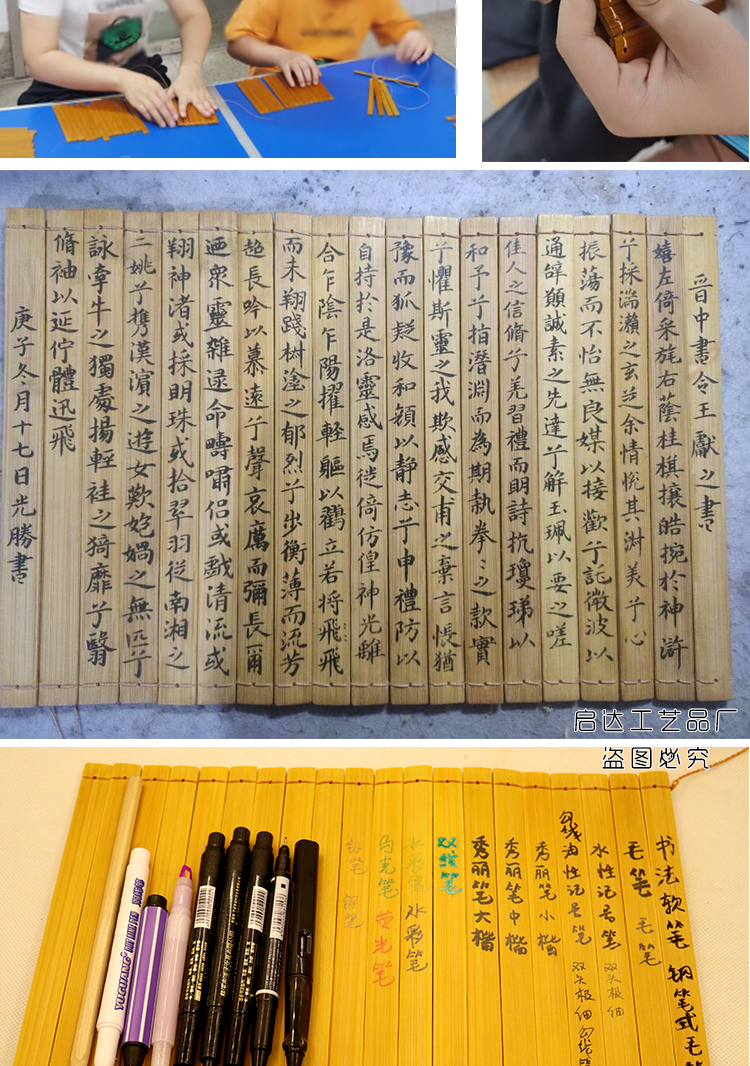 晋中書令王獻之書
嬉左倚采旄右蔭桂棋攘皓捥於神滸
兮採湍瀨之玄芝余情悅其淋美兮心
振蕩而不怡無良媒以接歡兮託微波以
通辭願誠素之先達兮解玉珮以要之嗟
佳人之信脩兮羌習禮而明詩抗瓊珶以
和予兮指潛淵而為期執拳〻之款實
兮懼斯靈之我欺感交甫之棄言悵猶
豫而狐疑收和顏以静志兮申禮防以
自持於是洛靈感焉徙倚仿偟神光離
合乍陰乍陽擢輕軀以鶴立若将飛飛
而未翔踐椒塗之郁烈兮步衡薄而流芳
超長吟以慕遠兮聲哀厲而彌長爾
迺衆靈雜遝命疇嘯侶或戲清流或
翔神渚或採明珠或拾翠羽從南湘之
二姚兮攜漢濱之遊女歎妑媧之無匹兮
詠牽牛之獨處揚輕袿之猗靡兮翳
脩袖以延佇體迅飛
庚子冬月十七日光勝書
启达工艺品厂
盗图必究
书法软笔 钢笔式毛笔
毛笔 毛笔
水性记号笔 双头极细
勾线油性记号笔 双头极细勾线笔
秀丽笔小楷
秀丽笔中楷
秀丽笔大楷
双线笔
水彩笔 水彩笔
马克笔 荧光笔
铅笔 钢笔
YUGUANG